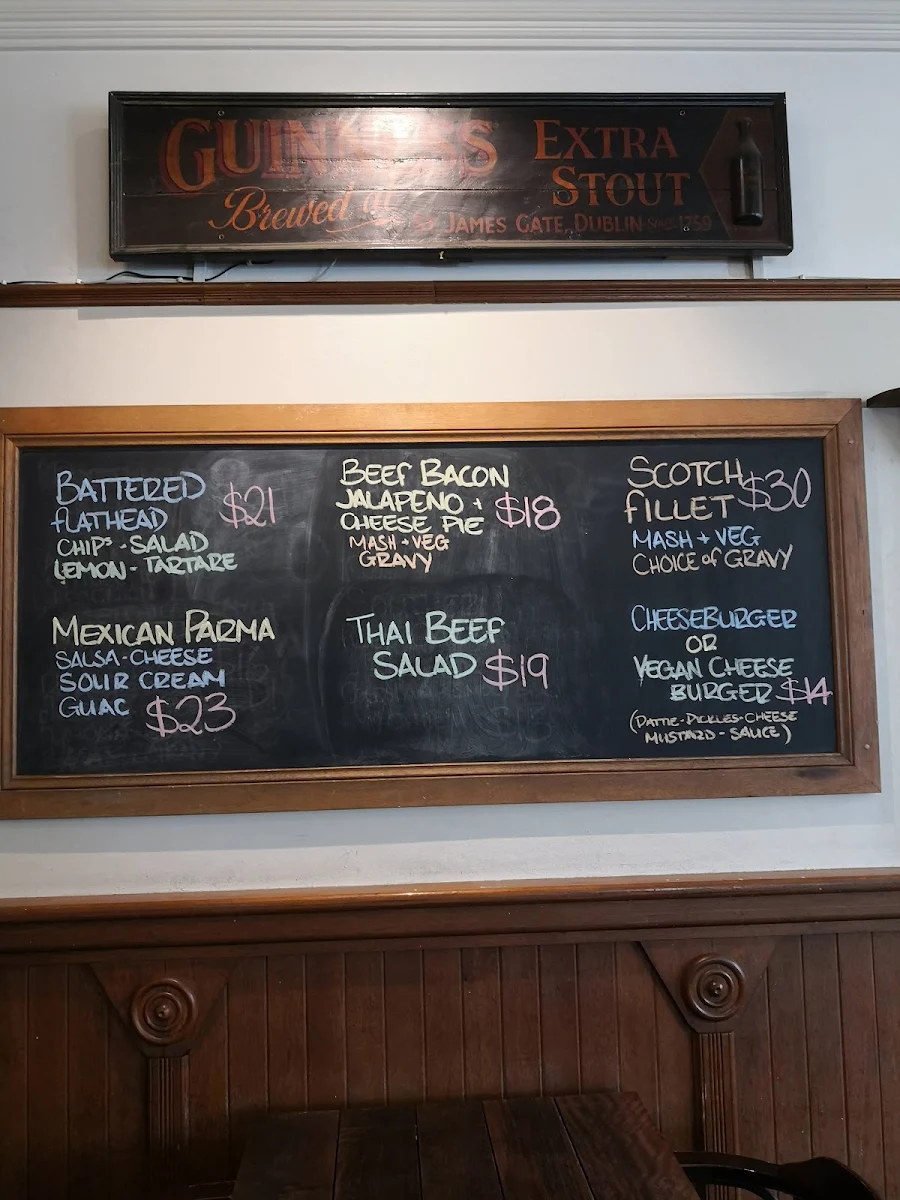 GUINNESS EXTRA
STOUT
Brewed at
St. JAMES GATE, DUBLIN SINCE 1759
BATTERED
FLATHEAD $21
CHIPS - SALAD
LEMON - TARTARE
BEEF BACON
JALAPENO +
CHEESE PIE $18
MASH + VEG
GRAVY
SCOTCH
FILLET $30
MASH + VEG
CHOICE of GRAVY
MEXICAN PARMA
SALSA - CHEESE
SOUR CREAM
GUAC $23
THAI BEEF
SALAD $19
CHEESEBURGER
OR
VEGAN CHEESE
BURGER $14
(PATTIE-PICKLES-CHEESE
MUSTARD - SAUCE)